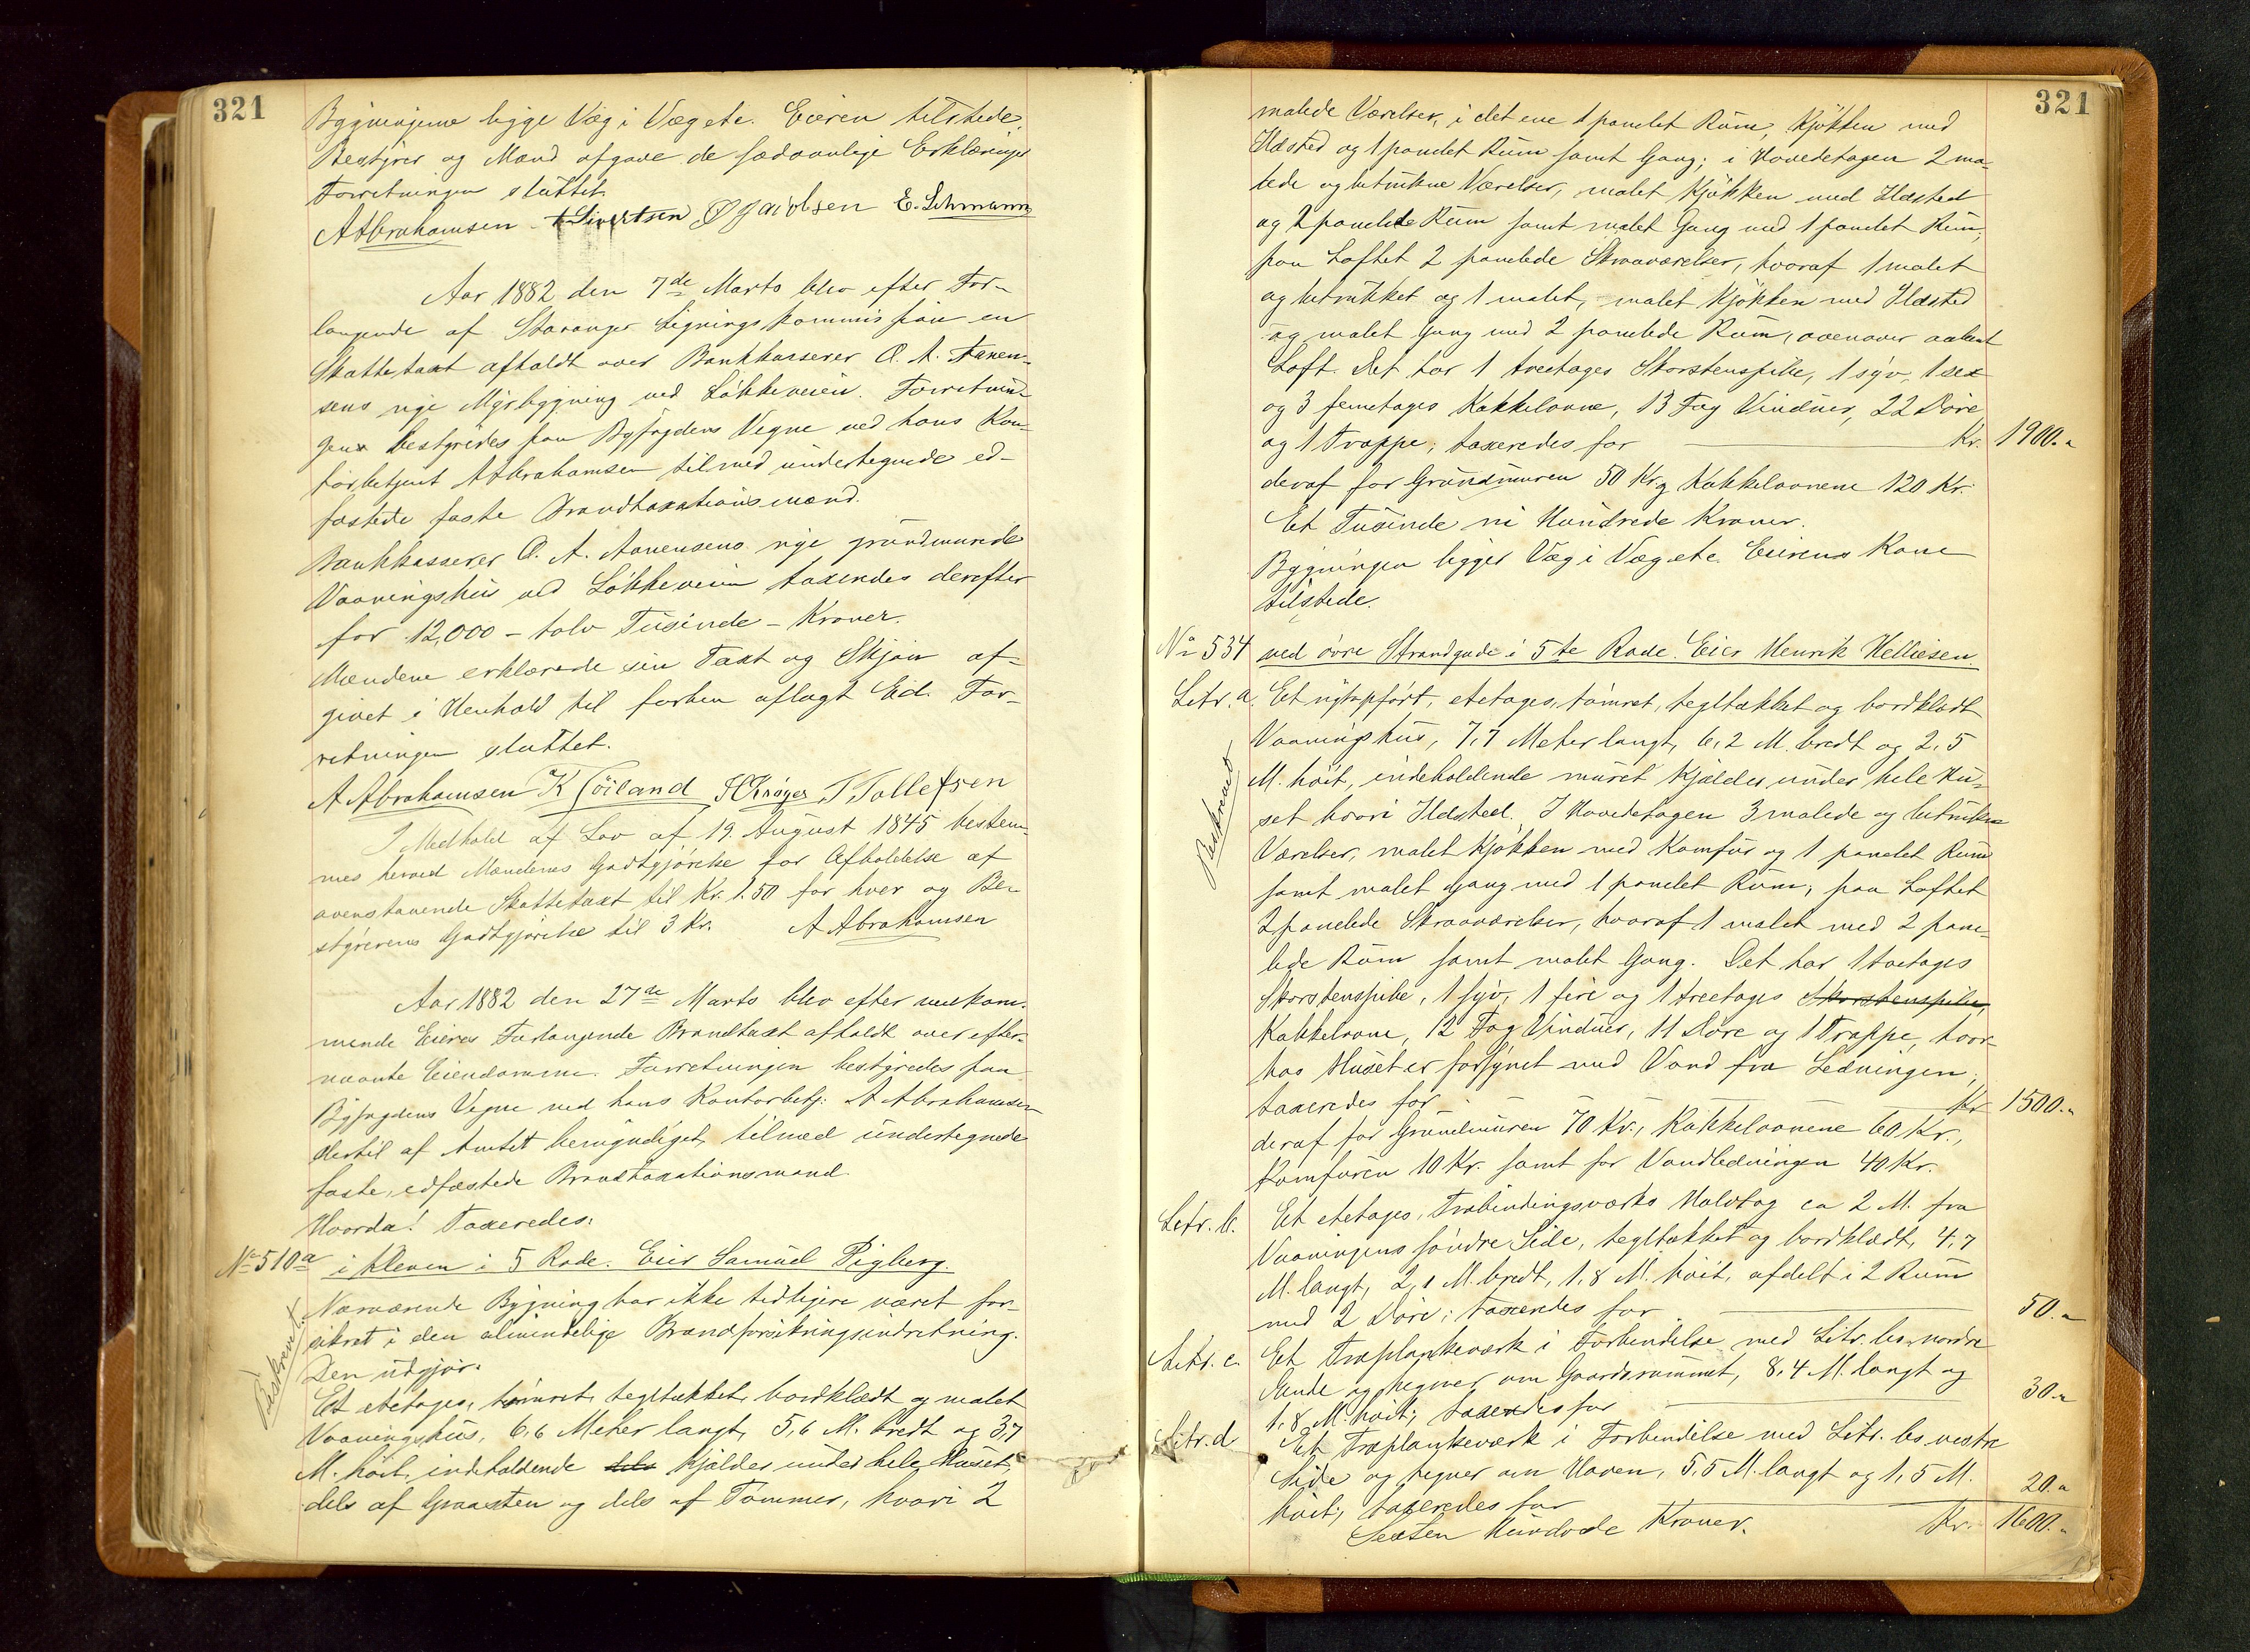 321
Bygningerne ligge Væg i Væg etc. Eieren tilstede.
Bestyrer og Mænd afgave de sædvanlige Erklæringer
Forretningen sluttet.
A Abrahamsen Sivertsen Jacobsen E. Lehmann
Aar 1882 den 7de Marts blev efter For-
langende af Stavanger Ligningskommission en
Skattetaxt afholdt over Bankkasserer O. A. Aanen-
sens nye Mÿrbygning ved Løkkeveien. Forretnin-
gen bestyredes paa Byfogdens Vegne ved hans Kon-
torbetjent A Abrahamsen tilmed undertegnede ed-
fæstede faste Brandtaxationsmænd.
Bankkasserer O. A. Aanensens nye grundmurede
Vaaningshus ved Løkkeveien taxeredes derefter
for 12,000 – tolv Tusinde – Kroner.
Mændene erklærede sin Taxt og Skjøn af-
givet i Henhold til forhen aflagt Ed. For-
retningen sluttet.
A Abrahamsen K Töiland T Tollefsen
I Medhold af Lov af 19. August 1845 bestem-
mes herved Mændenes Godtgjørelse for Afholdelse af
ovenstaaende Skattetaxt til Kr. 1.50 for hver og Be-
styrerens Godtgjørelse til 3 Kr. A Abrahamsen
Aar 1882 den 27de Marts blev efter vedkom-
mende Eieres Forlangende Brandtaxt afholdt over efter-
nævnte Eiendomme. Forretningen bestyredes paa
Byfogdens Vegne ved hans Kontorbetj: A Abrahamsen
dertil af Amtet bemyndiget, tilmed undertegnede
faste, edfæstede Brandtaxationsmænd.
Hvorda! Taxeredes:
No 510a i Kleven i 5 Rode. Eier Samuel Pigberg.
Beskrevet.
Nærværende Bygning har ikke tidligere været for-
sikret i den almindelige Brandforsikringsindretning.
Den udgjør:
Et etetages, tømret, tegltækket, bordklædt og malet
Vaaningshus, 6,6 Meter langt, 5,6 M. bredt og 3,7
M. høit, indeholdende dels Kjælder under hele Huset,
dels af Graasten og dels af Tømmer, hvori 2
321
malede Værelser, i det ene 1 panelet Rum, Kjøkken med
Ildsted og 1 panelet Rum samt Gang; i Hovedetagen 2 ma-
lede og betrukne Værelser, malet Kjøkken med Ildsted
og 2 panelede Rum samt malet Gang med 1 panelet Rum;
paa Loftet 2 panelede Skraaværelser, hvoraf 1 malet
og betrukket og 1 malet, malet Kjøkken med Ildsted
og malet Gang med 2 panelede Rum, ovenover aabent
Loft. Det har 1 treetages Skorstenspibe, 1 syv, 1 sex
og 3 femetages Kakkelovne, 13 Fag Vinduer, 22 Døre
og 1 Trappe; taxeredes for Kr. 1900.„
deraf for Grundmuren 50 Kr. og Kakkelovnene 120 Kr.
Et Tusinde ni Hundrede Kroner.
Bygningen ligger Væg i Væg etc. Eierens Kone
tilstede.
No 534 ved øvre Strandgade i 5te Rode. Eier Henrik Helliesen.
Beskrevet
Litr. a. Et nyt opført, etetages, tømret, tegltækket og bordklædt
Vaaningshus, 7,7 Meter langt, 6,2 M. bredt og 2,5
M. høit, indeholdende muret Kjælder under hele Hu-
set hvori Ildsted. I Hovedetagen 3 malede og betrukne
Værelser, malet Kjøkken med Komfur og 1 panelet Rum
samt malet Gang med 1 panelet Rum; paa Loftet
2 panelede Skraaværelser, hvoraf 1 malet med 2 pane-
lede Rum samt malet Gang. Det har 1 toetages
Skorstenspibe, 1 syv, 1 fire og 1 treetages Skorstenspibe,
Kakkelovne, 12 Fag Vinduer, 11 Døre og 1 Trappe, hvor-
hos Huset er forsynet med Vand fra Ledningen;
taxeredes for Kr 1500.„
deraf for Grundmuren 70 Kr., Kakkelovnene 60 Kr.,
Komfuren 10 Kr. samt for Vandledningen 40 Kr.
Litr. b. Et etetages, Træbindingsværks Halvtag ca 2 M. fra
Vaaningens søndre Side, tegltækket og bordklædt, 4,7
M. langt, 2,1 M. bredt, 1,8 M. høit, afdelt i 2 Rum
med 2 Døre; taxeredes for 50.„
Litr. c. Et Træplankeværk i Forbindelse med Litr. bs nordre
Ende og hegner om Gaardsrummet, 8,4 M. langt og
1,8 M. høit; taxeredes for 30.„
Litr. d Et Træplankeværk i Forbindelse med Litr. bs vestre
Side og hegner om Haven, 5,5 M. langt og 1,5 M.
høit; taxeredes for 20.„
Sexten Hundrede Kroner. Kr. 1600.„